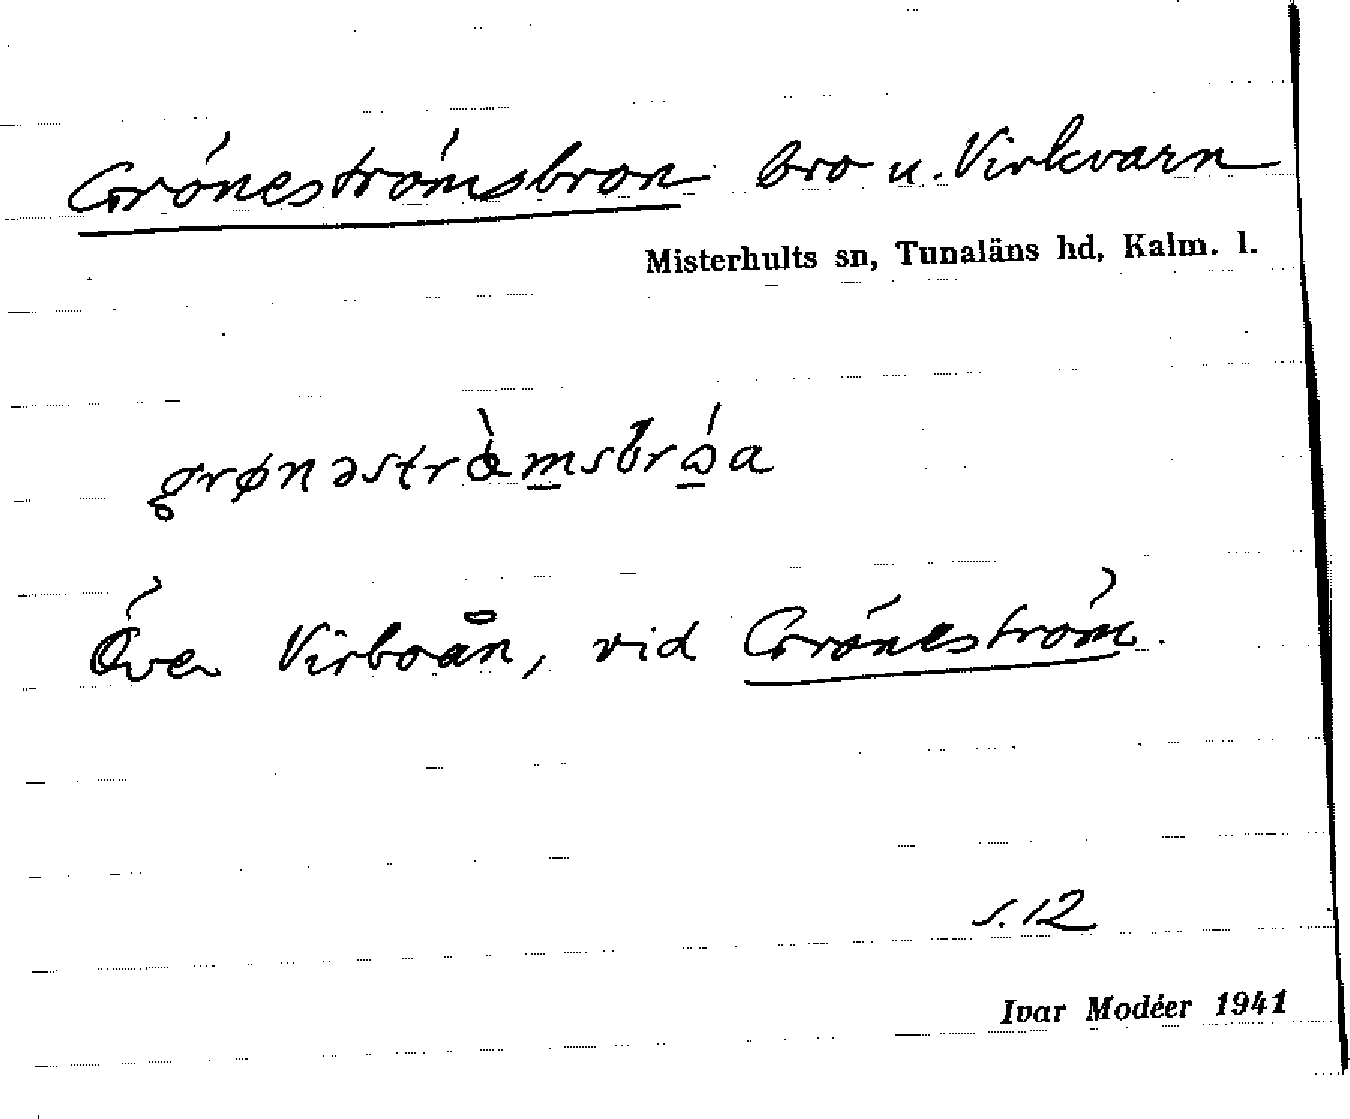 Gröneströmsbron bro u. Virkvarn
Misterhults sn, Tunaläns hd, Kalm. l.
Över Virboån, vid Gröneström.
s. 12
Ivar Modéer 1941